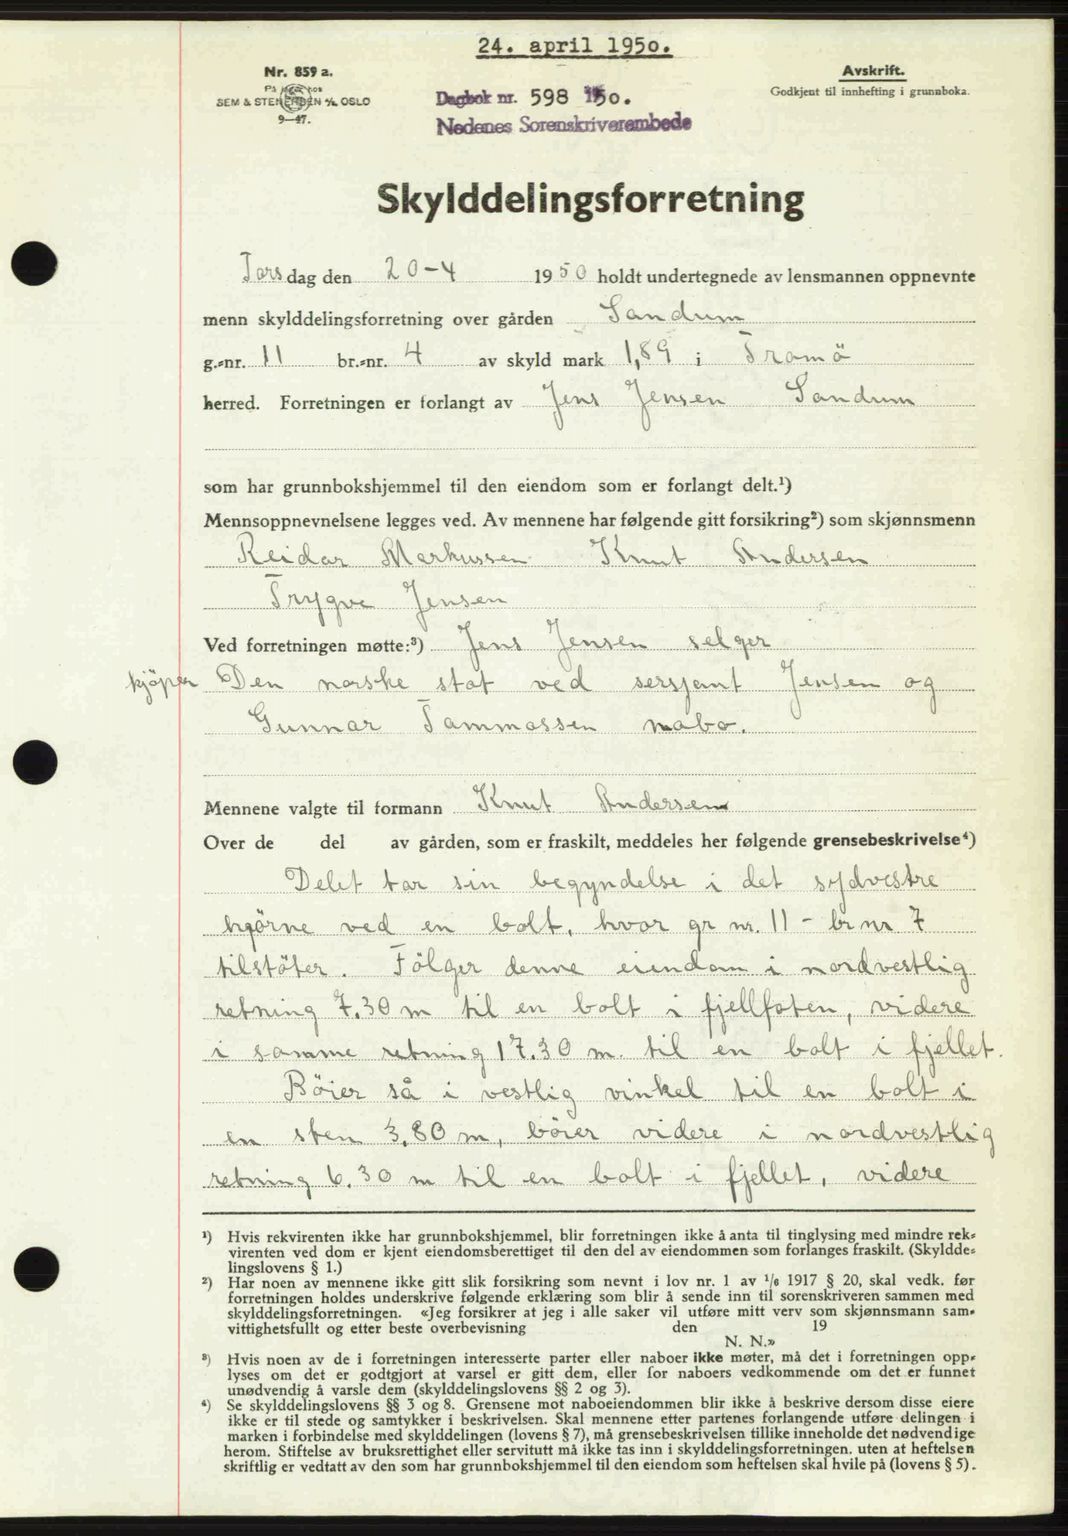 24. april 1950.
Nr. 859 a.
På lager hos
SEM & STENERSEN A/S OSLO
9—47.
Dagbok nr. 598 1950.
Nedenes Sorenskriverembede
Avskrift.
Godkjent til innhefting i grunnboka.
Skylddelingsforretning
Torsdag den 20-4 1950 holdt undertegnede av lensmannen oppnevnte
menn skylddelingsforretning over gården Sandum
g.-nr. 11 br.-nr. 4 av skyld mark 1,89 i Tromö
herred. Forretningen er forlangt av Jens Jensen Sandum
som har grunnbokshjemmel til den eiendom som er forlangt delt.¹)
Mennsoppnevnelsene legges ved. Av mennene har følgende gitt forsikring²) som skjønnsmenn
Reidar Markussen Knut Andersen
Trygve Jensen
Ved forretningen møtte:³) Jens Jensen selger
kjöper Den norske stat ved sersjant Jensen og
Gunnar Tommassen nabo.
Mennene valgte til formann Knut Andersen
Over de del av gården, som er fraskilt, meddeles her følgende grensebeskrivelse⁴)
Delet tar sin begyndelse i det sydvestre
hjörne ved en bolt, hvor gr nr. 11 - br nr 7
tilstöter. Fölger denne eiendom i nordvestlig
retning 7.30 m til en bolt i fjellfoten, videre
i samme retning 17.30 m. til en bolt i fjellet.
Böier så i vestlig vinkel til en bolt i
en sten 3,80 m, böier videre i nordvestlig
retning 6.30 m til en bolt i fjellet, videre
¹) Hvis rekvirenten ikke har grunnbokshjemmel, blir forretningen ikke å anta til tinglysing med mindre rek-
virenten ved dom er kjent eiendomsberettiget til den del av eiendommen som forlanges fraskilt. (Skyldde-
lingslovens § 1.)
²) Har noen av mennene ikke gitt slik forsikring som nevnt i lov nr. 1 av ¹/₆ 1917 § 20, skal vedk. før
forretningen holdes underskrive følgende erklæring som blir å sende inn til sorenskriveren sammen med
skylddelingsforretningen. «Jeg forsikrer at jeg i alle saker vil utføre mitt verv som skjønnsmann sam-
vittighetsfullt og etter beste overbevisning den 19
N. N.»
³) Hvis noen av de i forretningen interesserte parter eller naboer ikke møter, må det i forretningen opp-
lyses om det er godtgjort at varsel er gitt dem, eller for naboers vedkommende om det er funnet
unødvendig å varsle dem (skylddelingslovens §§ 2 og 3).
⁴) Se skylddelingslovens §§ 3 og 8. Grensene mot naboeiendommen blir ikke å beskrive dersom disse eiere
ikke er til stede og samtykker i beskrivelsen. Skal mennene etter partenes forlangende utføre delingen i
marken i forbindelse med skylddelingen (lovens § 7), må grensebeskrivelsen tillike inneholde det nødvendige
herom. Stiftelse av bruksrettighet eller servitutt må ikke tas inn i skylddelingsforretningen, uten at heftelsen
skriftlig er vedtatt av den som har grunnbokshjemmel til den eiendom som heftelsen skal hvile på (lovens § 5).